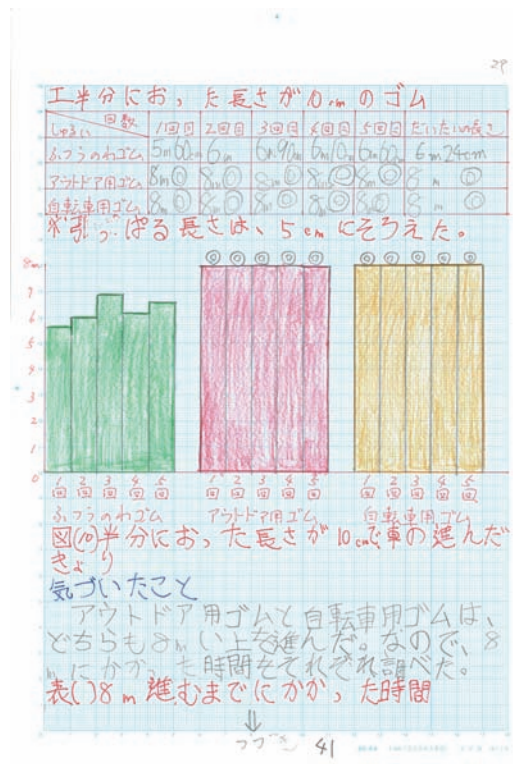 29
工半分におった長さが10cmのゴム
しゅるい 回数 1回目 2回目 3回目 4回目 5回目 だいたいの長さ
ふつうのわゴム 5m60cm 6m 6m90m 6m10m 6m60m 6m24cm
アウトドア用ゴム 8m◎ 8m◎ 8m◎ 8m◎ 8m◎ 8m◎
自転車用ゴム 8m◎ 8m◎ 8m◎ 8m◎ 8m◎ 8m◎
※引っぱる長さは、5cmにそろえた。
◎ ◎ ◎ ◎ ◎ ◎ ◎ ◎ ◎ ◎
8m
7
6
5
4
3
2
1
0
1回 2回 3回 4回 5回 1回 2回 3回 4回 5回 1回 2回 3回 4回 5回
ふつうのわゴム アウトドア用ゴム 自転車用ゴム
図(10)半分におった長さが10cmで車の進んだ
きょり
気づいたこと
アウトドア用ゴムと自転車用ゴムは、
どちらも8mい上を進んだ。なので、8
mにかかった時間をそれぞれ調べた。
表()8m進むまでにかかった時間
⇓
つづき 41